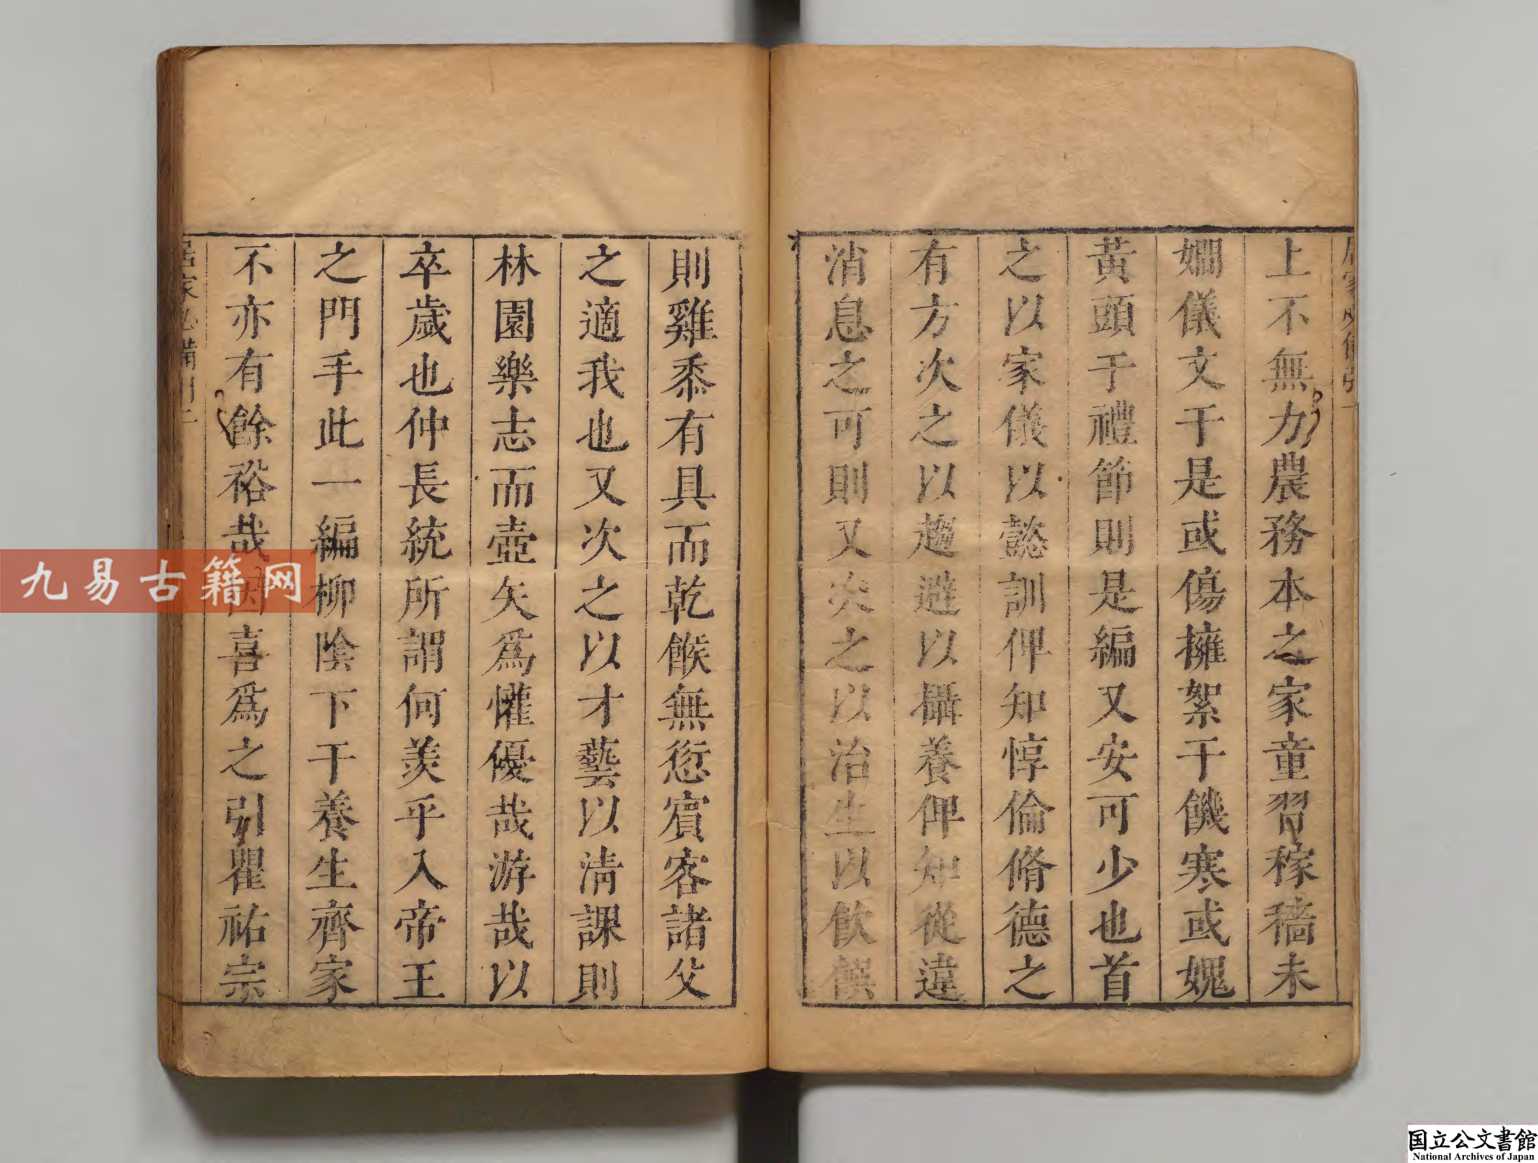 上不無力農務本之家童習稼穡未
嫺儀文于是或傷擁絮于饑寒或媿
黃頭于禮節則是編又安可少也首
之以家儀以懿訓俾知惇倫脩德之
有方次之以趨避以攝養俾知從違
消息之可則又次之以治生以飲饌
則雞黍有具而乾餱無愆賓客諸父
之適我也又次之以才藝以清課則
林園樂志而壺矢為懽優哉游哉以
卒歲也仲長統所謂何羨乎入帝王
之門手此一編柳陰下于養生齊家
不亦有餘裕哉 喜為之引瞿祐宗
居家必備引二
九易古籍网
国立公文書館
National Archives of Japan